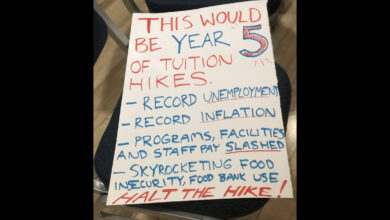 THIS WOULD
BE YEAR 5
OF TUITION
HIKES.
- RECORD UNEMPLOYMENT
- RECORD INFLATION
- PROGRAMS, FACILITIES
AND STAFF PAY SLASHED
- SKYROCKETING FOOD
INSECURITY, FOOD BANK USE
HALT THE HIKE!